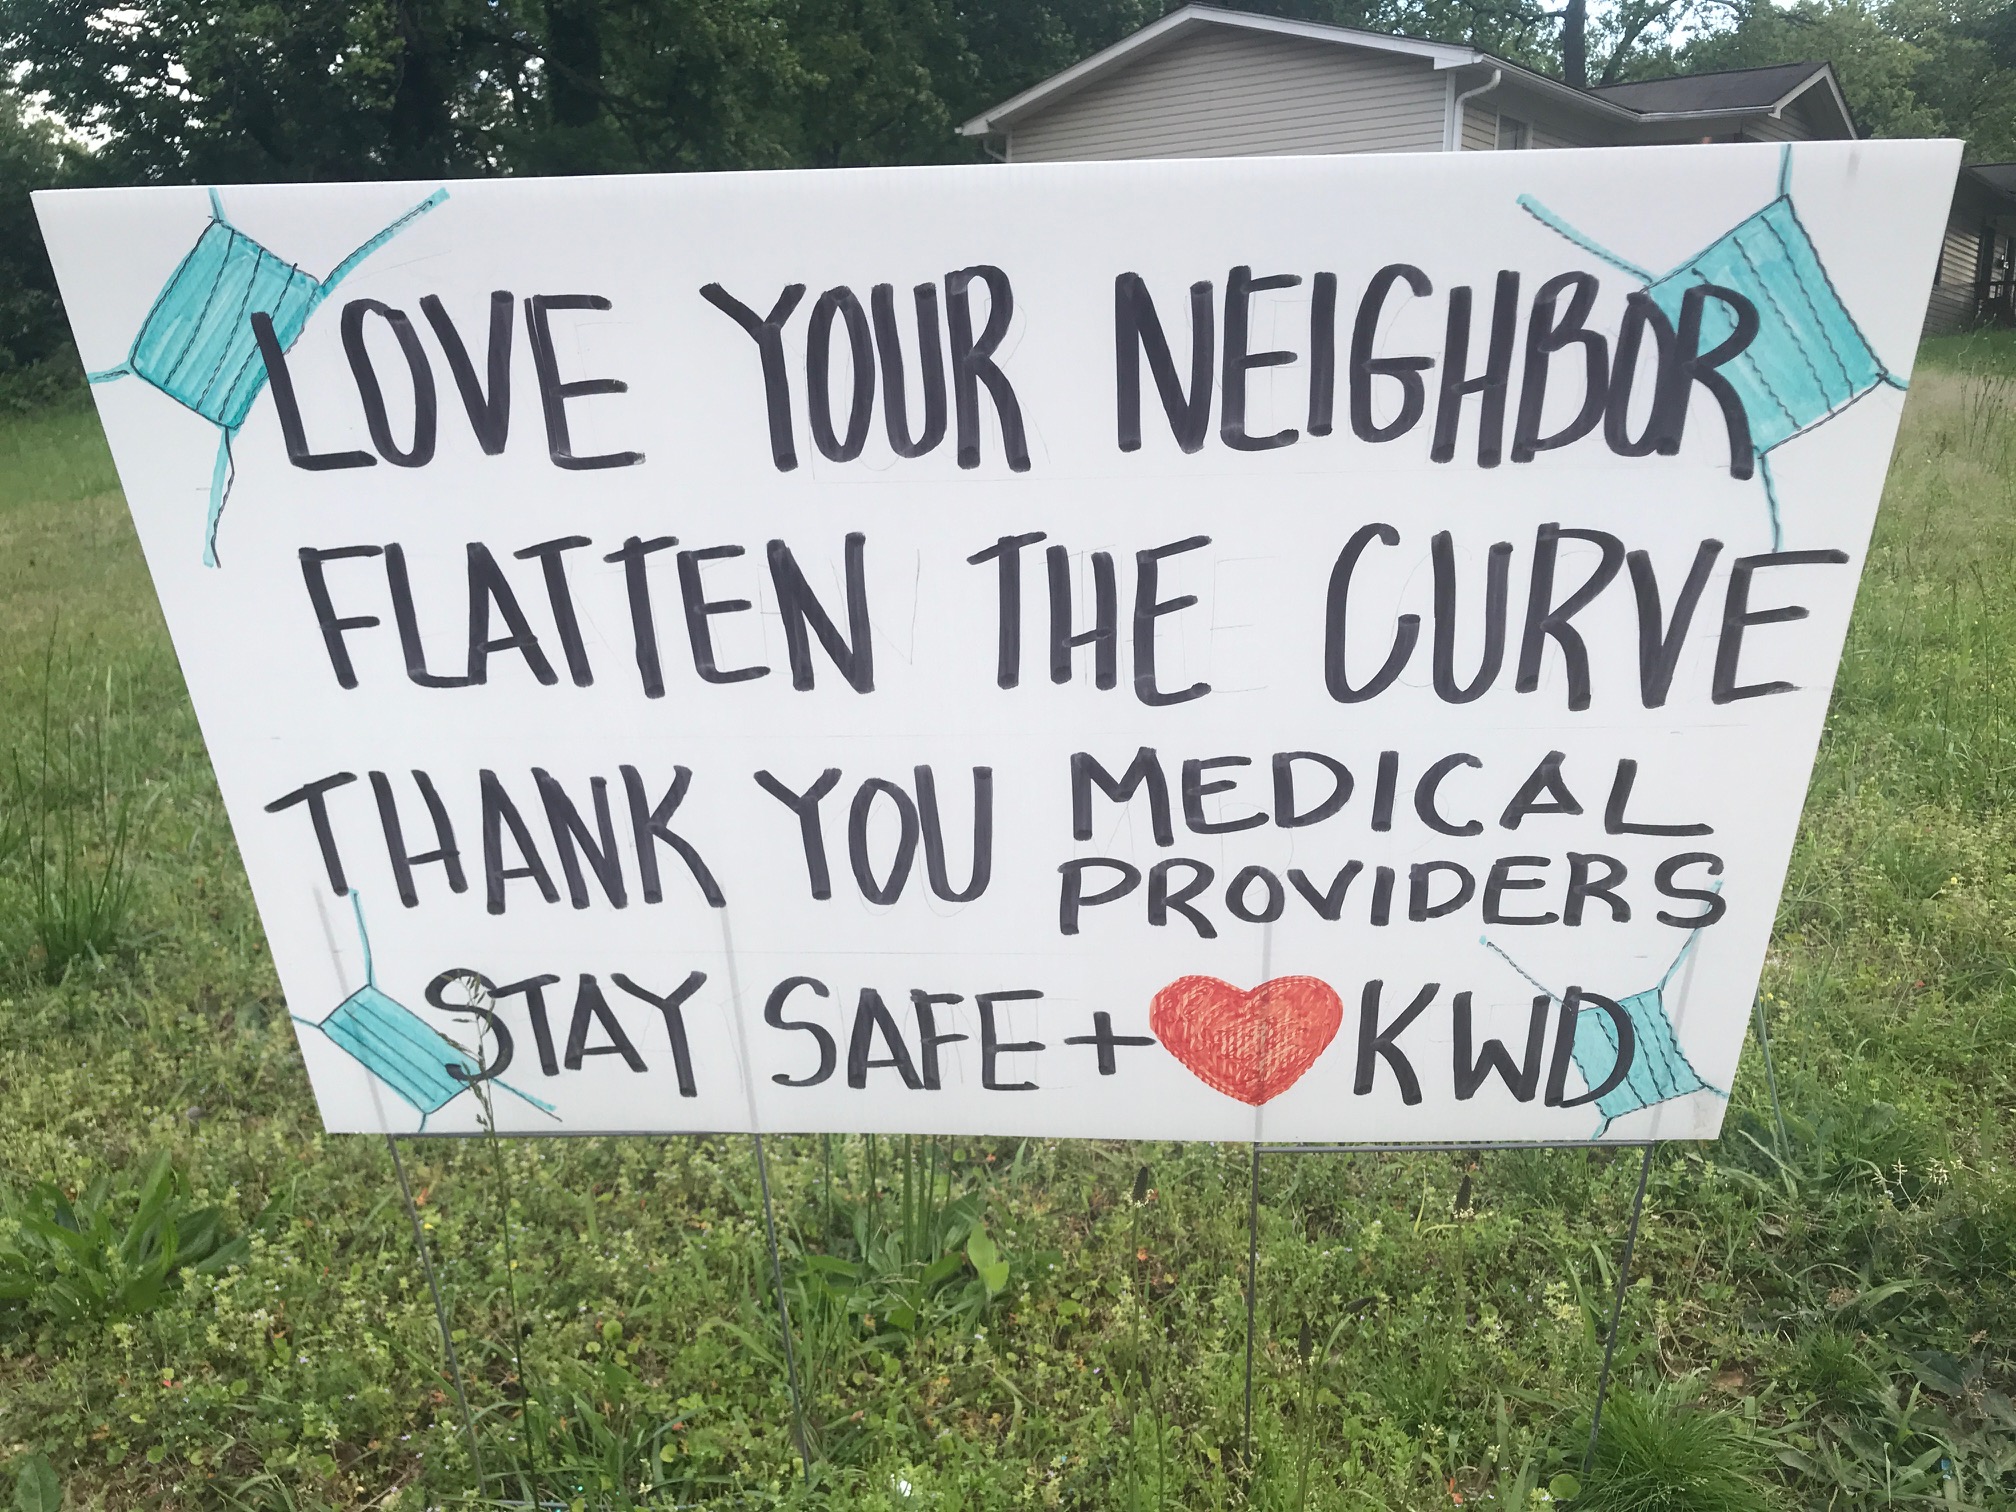 LOVE YOUR NEIGHBOR
FLATTEN THE CURVE
THANK YOU MEDICAL
PROVIDERS
STAY SAFE + ❤ KWD